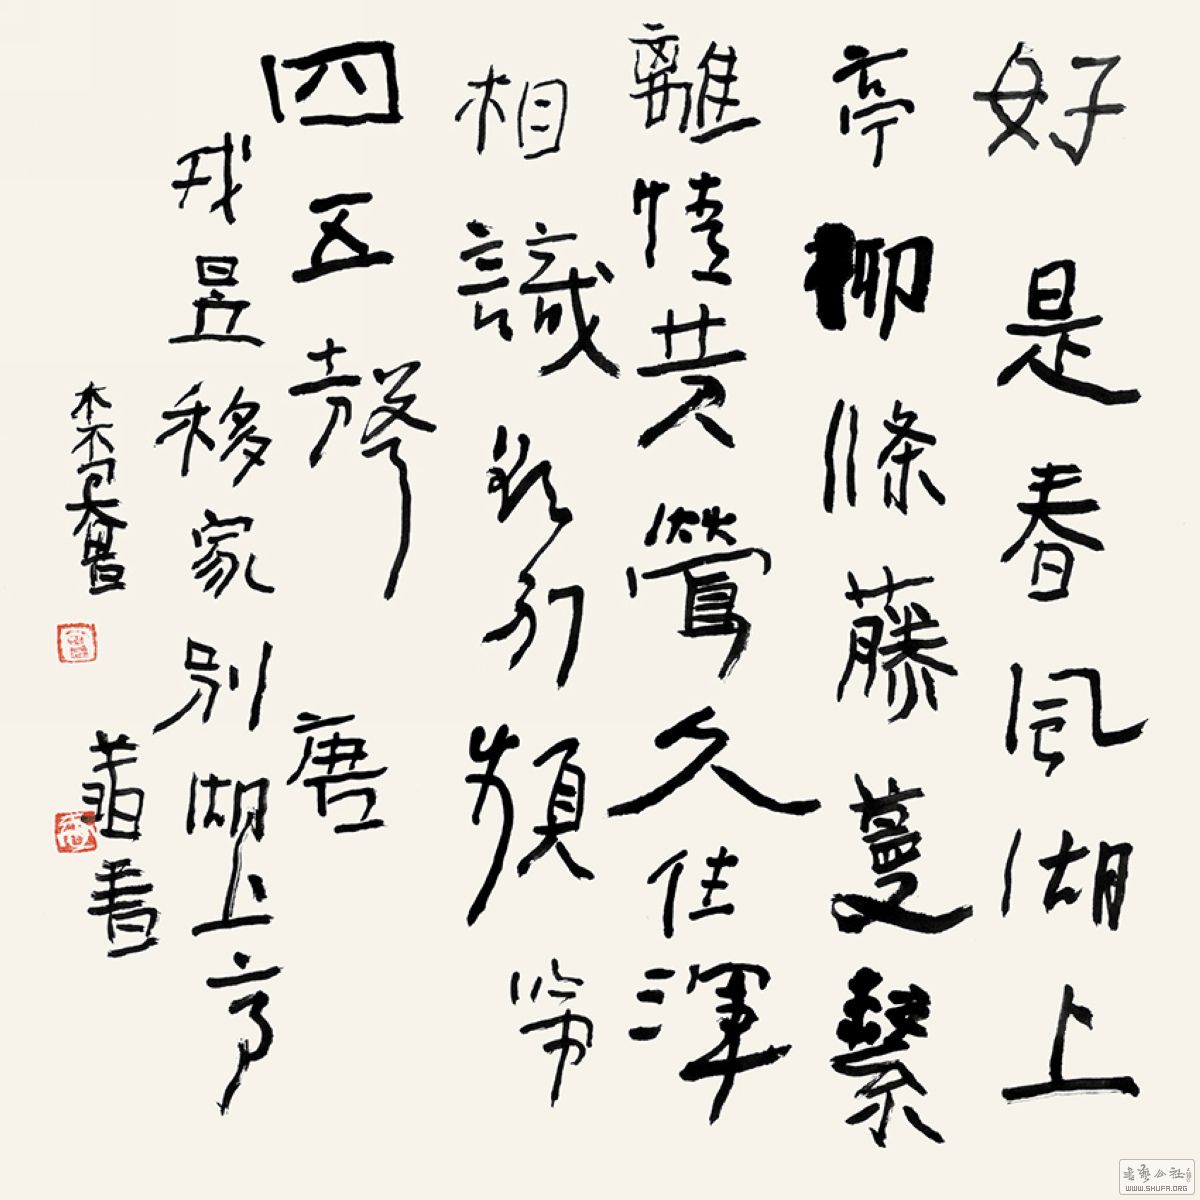 好是春風湖上
亭柳條藤蔓繫
離情黃鶯久住渾
相識欲別頻啼
四五聲 唐
戎昱移家別湖上亭
書
公社
WWW.SHUFA.ORG